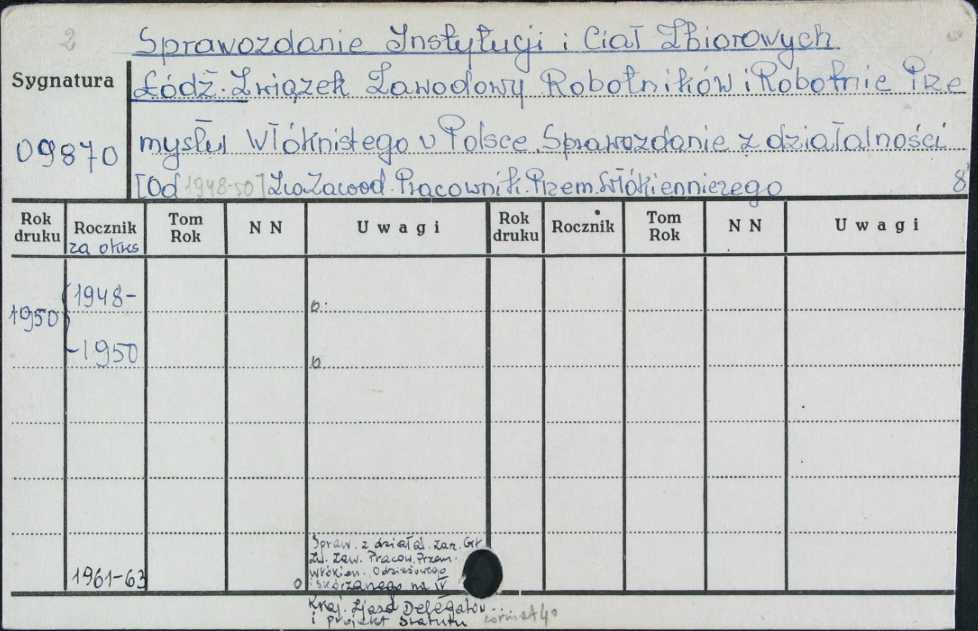 2
Sprawozdanie Instytucji i Ciał Zbiorowych
Sygnatura
Łódź. Związek Zawodowy Robotników i Robotnic Prze
09870
mysłu Włóknistego w Polsce. Sprawozdanie z działalności
[Od 1948-50] Zw. Zawod. Pracownik. Przem. Włókienniczego 8
Rok druku Rocznik Tom Rok N N Uwagi Rok druku Rocznik Tom Rok N N Uwagi
za okres
1950 1948-
-1950
1961-63
Spraw. z działal. Zarz. Gł.
Zw. Zaw. Pracow. Przem.
Włókien. Odzieżowego
Skórzanego na IV
Kraj. Zjazd Delegatów
i projekt Statutu format 4°